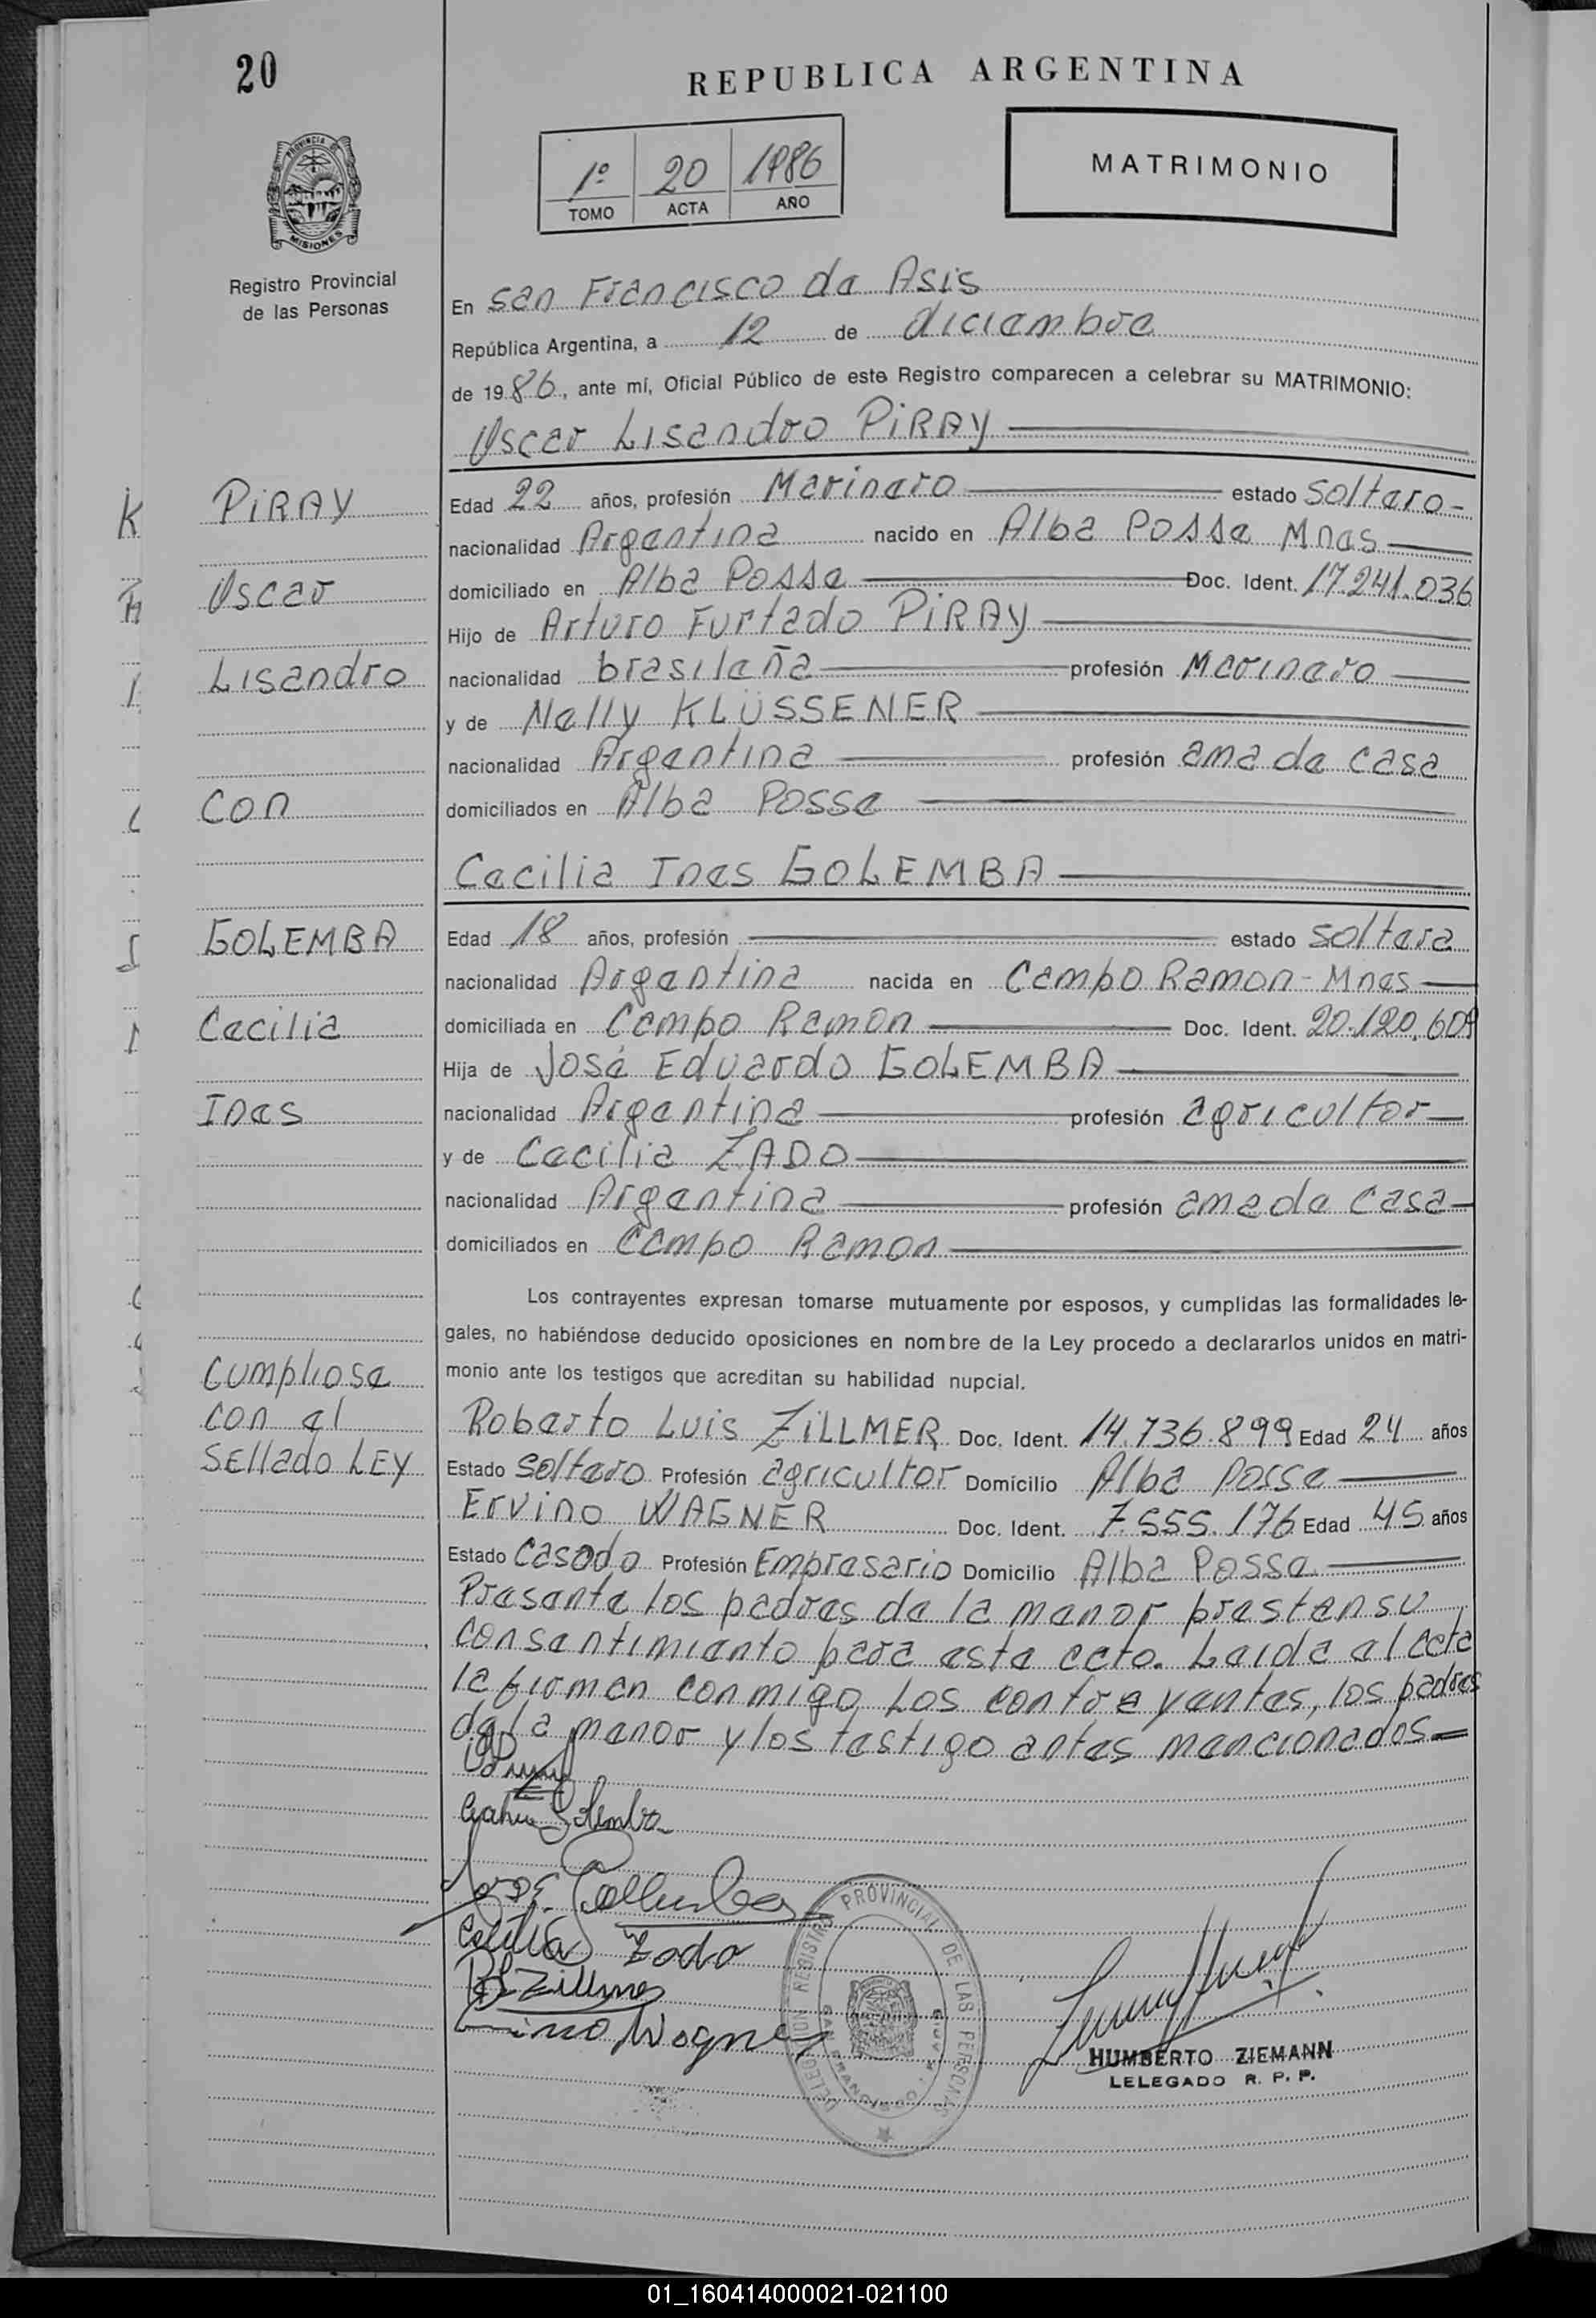 20
REPUBLICA ARGENTINA
1º 20 1986
TOMO ACTA AÑO
MATRIMONIO
PROVINCIA DE
MISIONES
Registro Provincial
de las Personas
En San Francisco de Asis
República Argentina, a 12 de diciembre
de 1986, ante mí, Oficial Público de este Registro comparecen a celebrar su MATRIMONIO:
Oscar Lisandro PiRAY
PiRAY
Oscar
Lisandro
con
GOLEMBA
Cecilia
Ines
Cumpliose
con el
Sellado LEY
Edad 22 años, profesión Marinero estado soltero
nacionalidad Argentina nacido en Alba Posse Mnes
domiciliado en Alba Posse Doc. Ident. 17.241.036
Hijo de Arturo Furtado PiRAY
nacionalidad brasileña profesión Marinero
y de Nelly KLÜSSENER
nacionalidad Argentina profesión ama de casa
domiciliados en Alba Posse
Cecilia Ines GOLEMBA
Edad 18 años, profesión estado soltera
nacionalidad Argentina nacida en Campo Ramon - Mnes
domiciliada en Campo Ramon Doc. Ident. 20.120.609
Hija de José Eduardo GOLEMBA
nacionalidad Argentina profesión agricultor
y de Cecilia ZADO
nacionalidad Argentina profesión ama de casa
domiciliados en Campo Ramon
Los contrayentes expresan tomarse mutuamente por esposos, y cumplidas las formalidades le-
gales, no habiéndose deducido oposiciones en nombre de la Ley procedo a declararlos unidos en matri-
monio ante los testigos que acreditan su habilidad nupcial.
Roberto Luis ZiLLMER Doc. Ident. 14.736.899 Edad 24 años
Estado soltero Profesión agricultor Domicilio Alba Posse
Ervino WAGNER Doc. Ident. 7.555.176 Edad 45 años
Estado Casado Profesión Empresario Domicilio Alba Posse
Presente los padres de la menor prestan su
consentimiento para este acto. Leida el acta
la firman conmigo Los contrayentes, los padres
de la menor y los testigo antes mencionados
Cecilia Golemba
José Gollemba
Cecilia Zado
RLZillmer
Ervino Wagner
DELEGACION REGISTRO PROVINCIAL DE LAS PERSONAS
SAN FRANCISCO
HUMBERTO ZIEMANN
LELEGADO R. P. P.
01_160414000021-021100